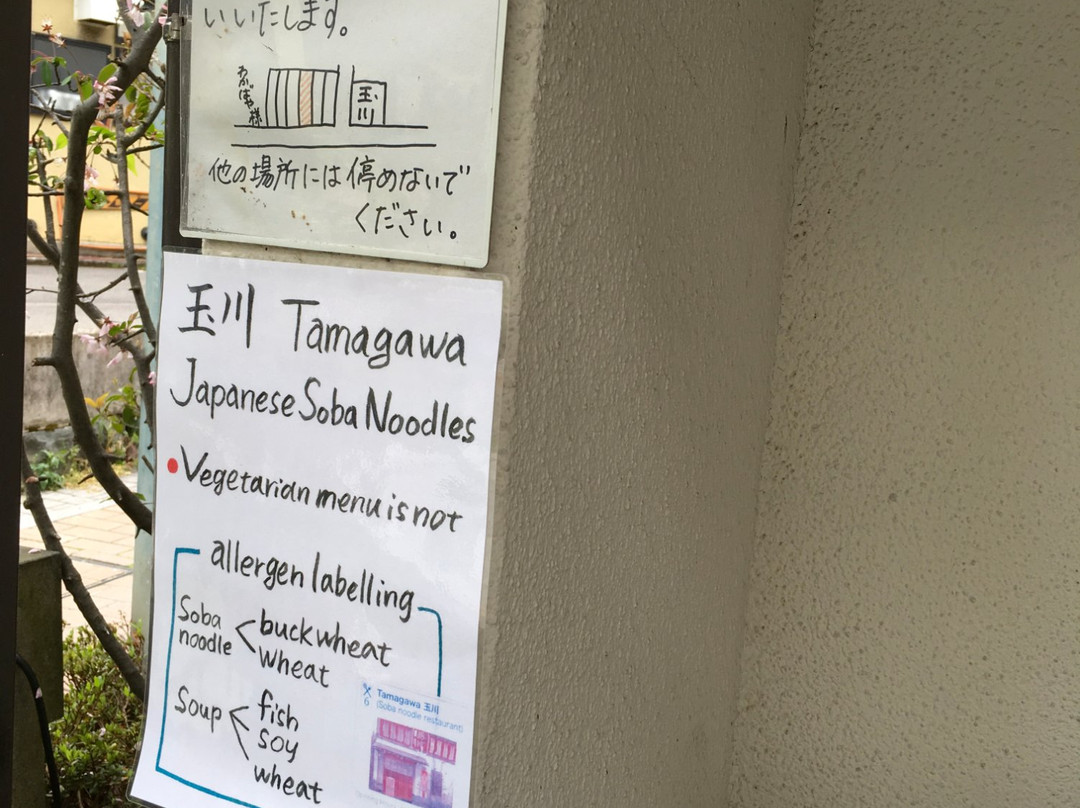 いいたします。
わかばや様
玉川
他の場所には停めないで
ください。
玉川 Tamagawa
Japanese Soba Noodles
Vegetarian menu is not
allergen labelling
Soba
noodle
buckwheat
wheat
Soup
fish
soy
wheat
6
Tamagawa 玉川
(Soba noodle restaurant)